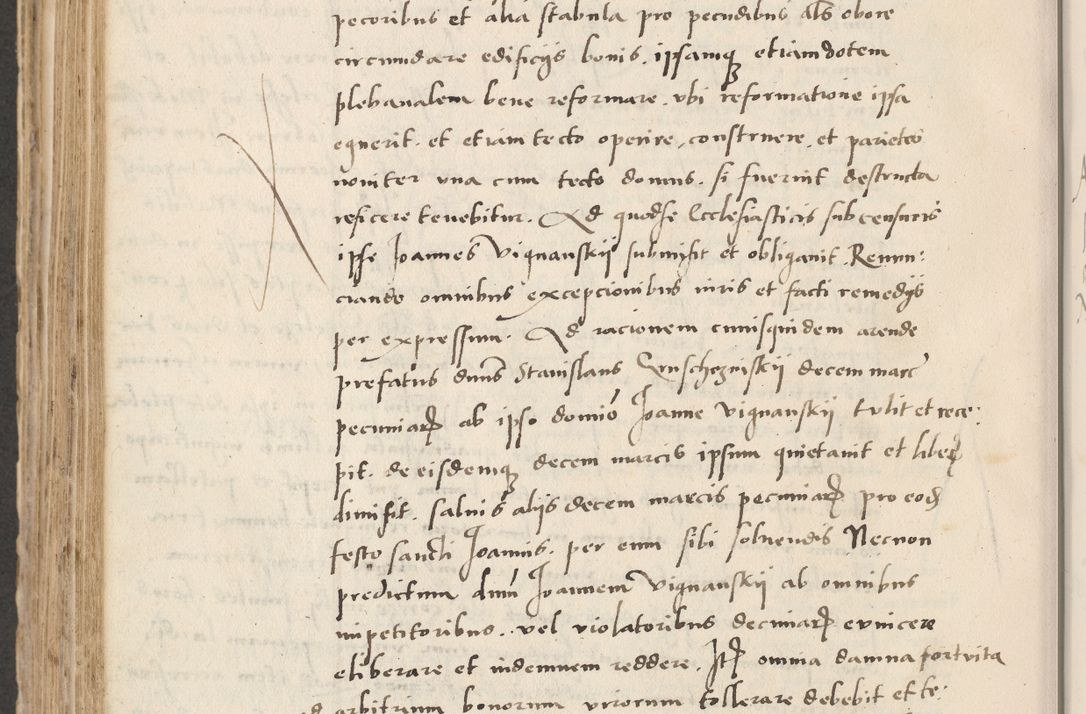 pecoribus et alia stabula pro pecudibus als obore
circumdare edificijs bonis. ipsamq etiam dotem
plebanalem bene reformare. ubi reformatione ipsa
eguerit. et etiam tecto operire, construere, et parietes
noviter una cum tecto domus. si fuerint destructa
reficere tenebitur. Ad quod se Ecclesiasticis sub censuris
ipse Joannes Vignanskij submisit et obligavit. Renun:
ciando omnibus excepcionibus iuris et facti remedijs
per expressum. Ad racionem cuiusquidem arende
prefatus dnus Stanislaus decem marc
pecuniar ab ipso domio Joanne Vignanskij tulit et rece:
pit. de eisdemq decem marcis ipsum quietavit et liber
dimisit. salvis alijs decem marcis pecuniar pro eod
festo sancti Joannis. per eum sibi solvendis Necnon
predictum dnu Joannem Vignanskij ab omnibus
impetitoribus. vel violatoribus decimar evincere
eliberare et indemnem reddere. Ite omnia damna fortvita
ad arbitrium bonorum virorum tollerare debebit et te: